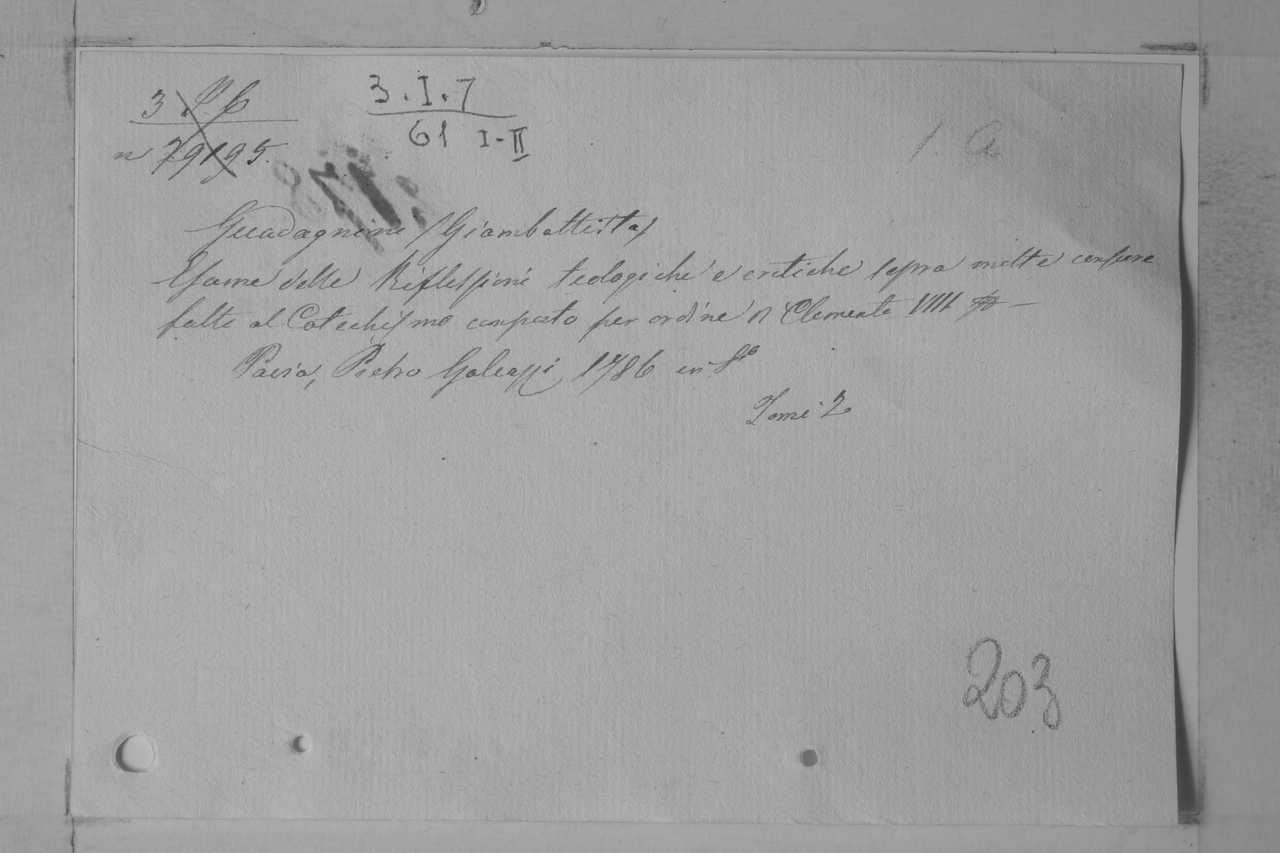 3 P 6
n° 79195.
3.I.7
61 I-II
1. a
Guadagnini /Giambattista/
Esame delle Riflessioni teologiche e critiche sopra molte censure
fatte al Catechismo composto per ordine di Clemente VIII
Pavia, Pietro Galeazzi 1786 in 8°
Tomi 2
203